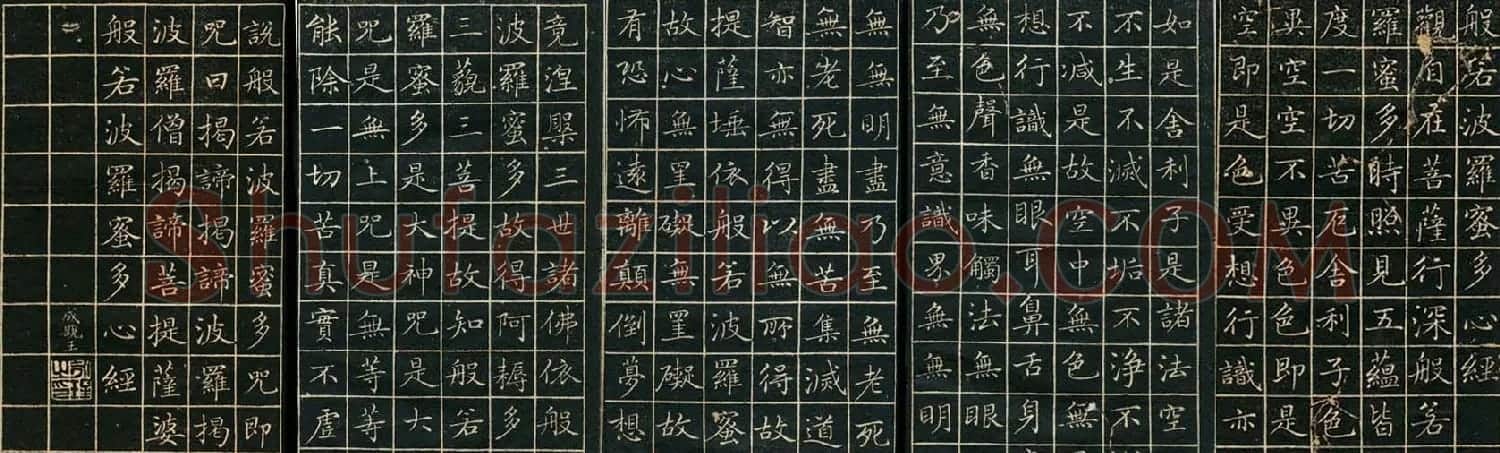 般若波羅蜜多心經
觀自在菩薩行深般若
羅蜜多時照見五蘊皆
度一切苦厄舍利子色
異空空不異色色即是
空即是色受想行識亦
如是舍利子是諸法空
不生不滅不垢不浄不
不减是故空中無色無
想行識無眼耳鼻舌身
無色聲香味觸法無眼
乃至無意識界無無明
無無明盡乃至無老死
無老死盡無苦集滅道
智亦無得以無所得故
提薩埵依般若波羅蜜
故心無罣礙無罣礙故
有恐怖遠離顛倒夢想
竟涅槃三世諸佛依般
波羅蜜多故得阿耨多
三藐三菩提故知般若
羅蜜多是大神咒是大
咒是無上咒是無等等
能除一切苦真實不虛
說般若波羅蜜多咒即
咒曰揭諦揭諦波羅揭
波羅僧揭諦菩提薩婆
般若波羅蜜多心經
成親王
Shufaziliao.COM